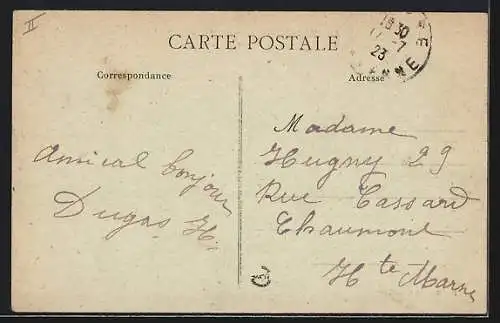 II
CARTE POSTALE
Correspondance
Adresse
19 30
-7
23
Amical bonjour
Dugas H
Madame
Hugny 29
Rue Cassard
Chaumont
Hte Marne